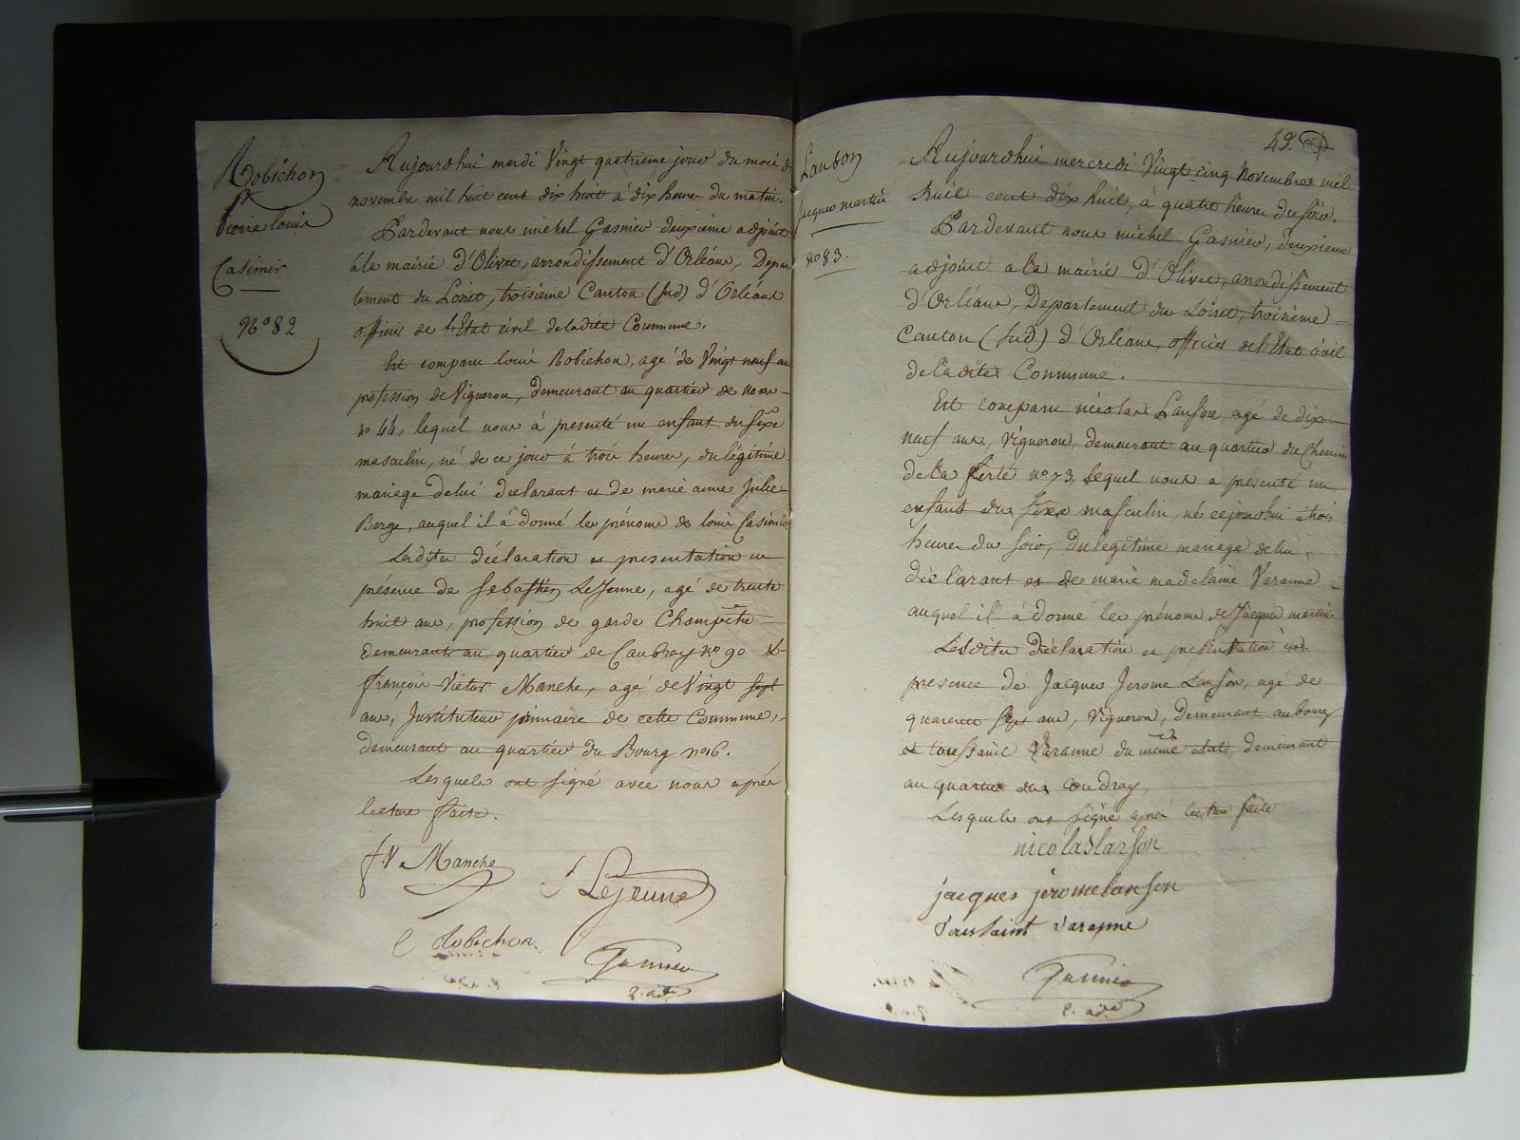 Robichon
Pierre Louis
Casimir
No 82
Aujourdhui mardi Vingt quatrieme jour du mois de
novembre mil huit cent dix huit à dix heures du matin.
Pardevant nous michel Gasnier deuxieme adjoint
à la mairie d'Olivet, arrondissement d'Orléans, Depar
tement du Loiret, troisieme Canton (sud) d'Orléans
officier de l'Etat civil de ladite Commune.
Est comparu louis Robichon, agé de Vingt neuf ans
profession de Vigneron, demeurant au quartier de
no 44, lequel nous à presenté un enfant du sexe
masculin, né de ce jour à trois heures, du légitime
mariage de lui déclarant et de marie anne Julie
Berge, auquel il à donné les prénoms de louis Casimir
Lesdites déclaration et presentation en
présence de Sebastien LeJeune, agé de trente
huit ans, profession de garde Champêtre
demeurant au quartier de Caubray no 90 &
françois Victor Manche, agé de Vingt sept
ans, Instituteur primaire de cette Commune,
demeurant au quartier du Bourg no 6.
Lesquels ont signé avec nous après
lecture faite.
f V Manche
S LeJeune
L Robichon
Gasnier
2. adj
49.
Lanson
Jacques martin
no 83.
Aujourdhui mercredi Vingt cinq Novembre mil
huit cent dix huit, à quatre heures du soir.
Pardevant nous michel Gasnier, deuxieme
adjoint a la mairie d'Olivet, arrondissement
d'Orléans, Departement du Loiret, troisieme
Canton (sud) d'Orléans, officier de l'Etat civil
de ladite Commune.
Est comparu nicolas Lanson, agé de dix
neuf ans, Vigneron, demeurant au quartier du Chemin
de la ferté no 73, lequel nous a presenté un
enfant du sexe masculin, né cejourdhui à trois
heures du soir, du légitime mariage de lui
déclarant et de marie madelaine Varanne
auquel il à donné les prénoms de Jacques martin
Lesdites déclaration et presentation en
presence de Jacques Jerome Lanson, agé de
quarente sept ans, Vigneron, demeurant au bourg
et toussaint Varanne du même etat, demeurant
au quartier du Coudray,
Lesquels ont signé après lecture faite
nicolas lanson
jacques jerome lanson
Toussaint varanne
Gasnier
2. adj